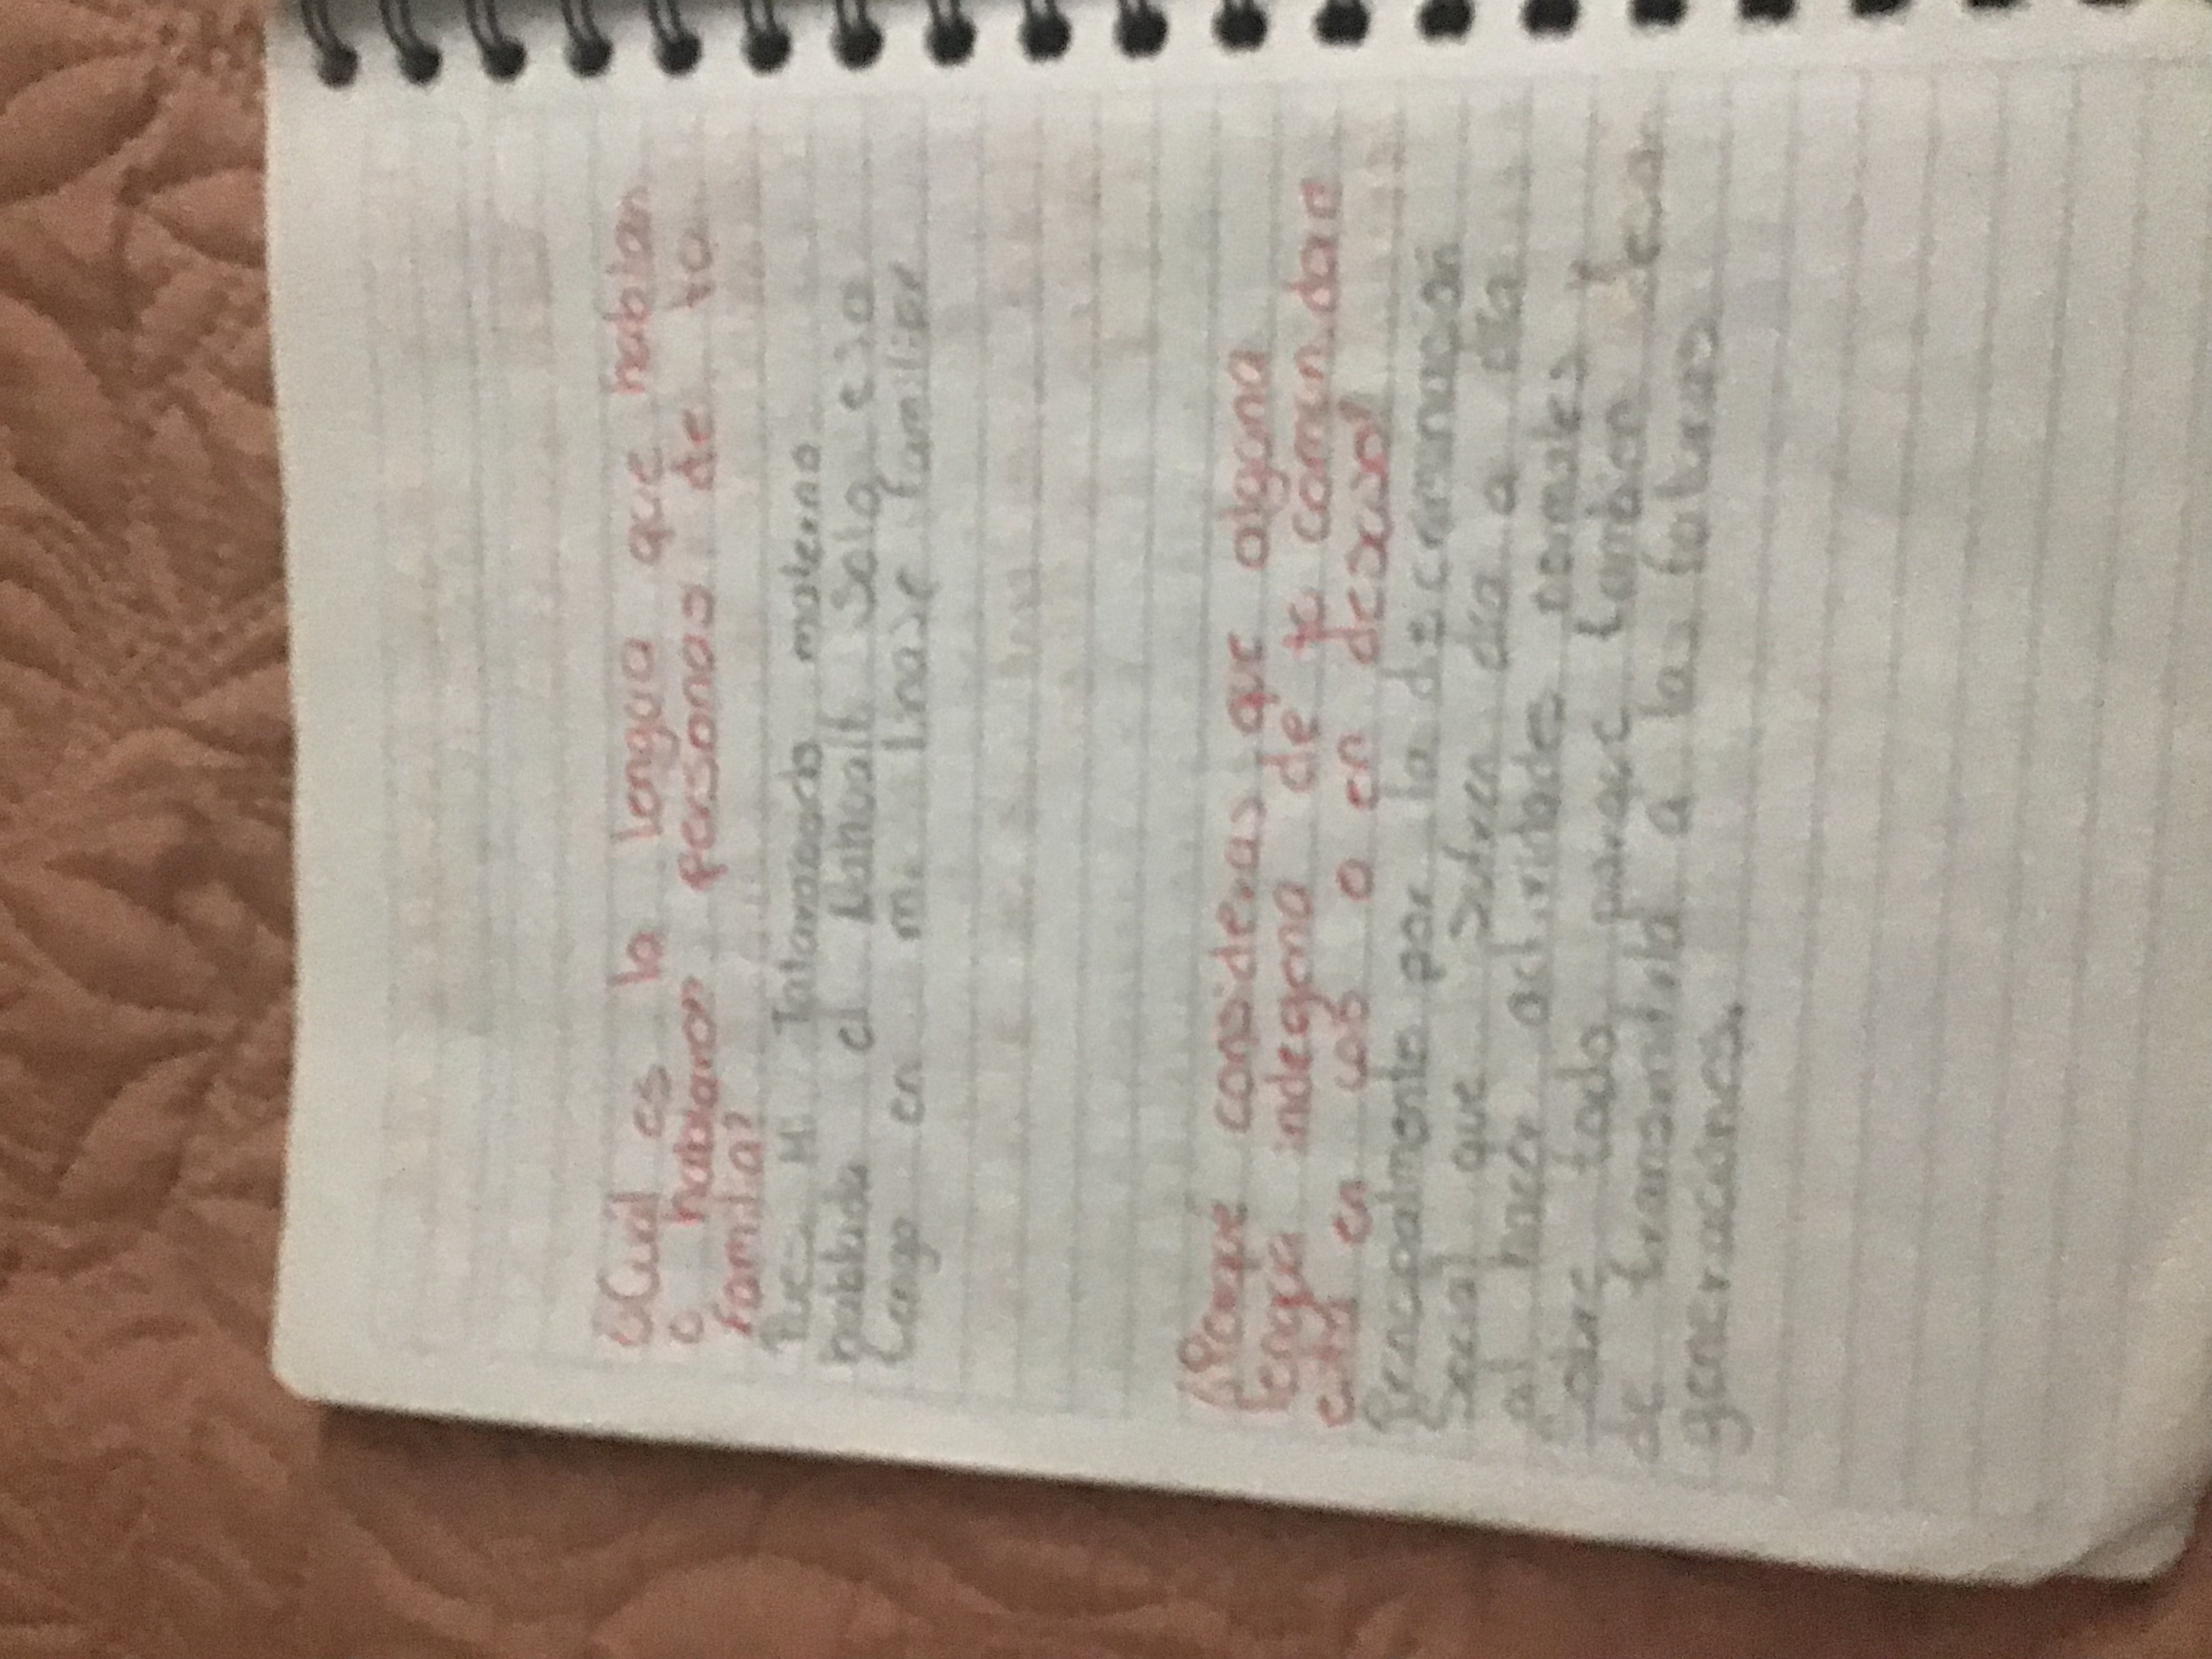 ¿Cuál es la lengua que hablan
o hablaron personas de tu
familia?
Pues Mi Tatarabuelo materno
hablaba el Nahualt Solo eso
Tengo en mi linaje familiar
¿Porqué consideras que alguna
lengua indegena de tu comunidad
está en uso o en desuso?
Principalmente por la discriminación
Social que sufren día a día
al hacer actividades normales Y
Sobre todo porque también dejan
de transmitirla a las futuras
generaciones.